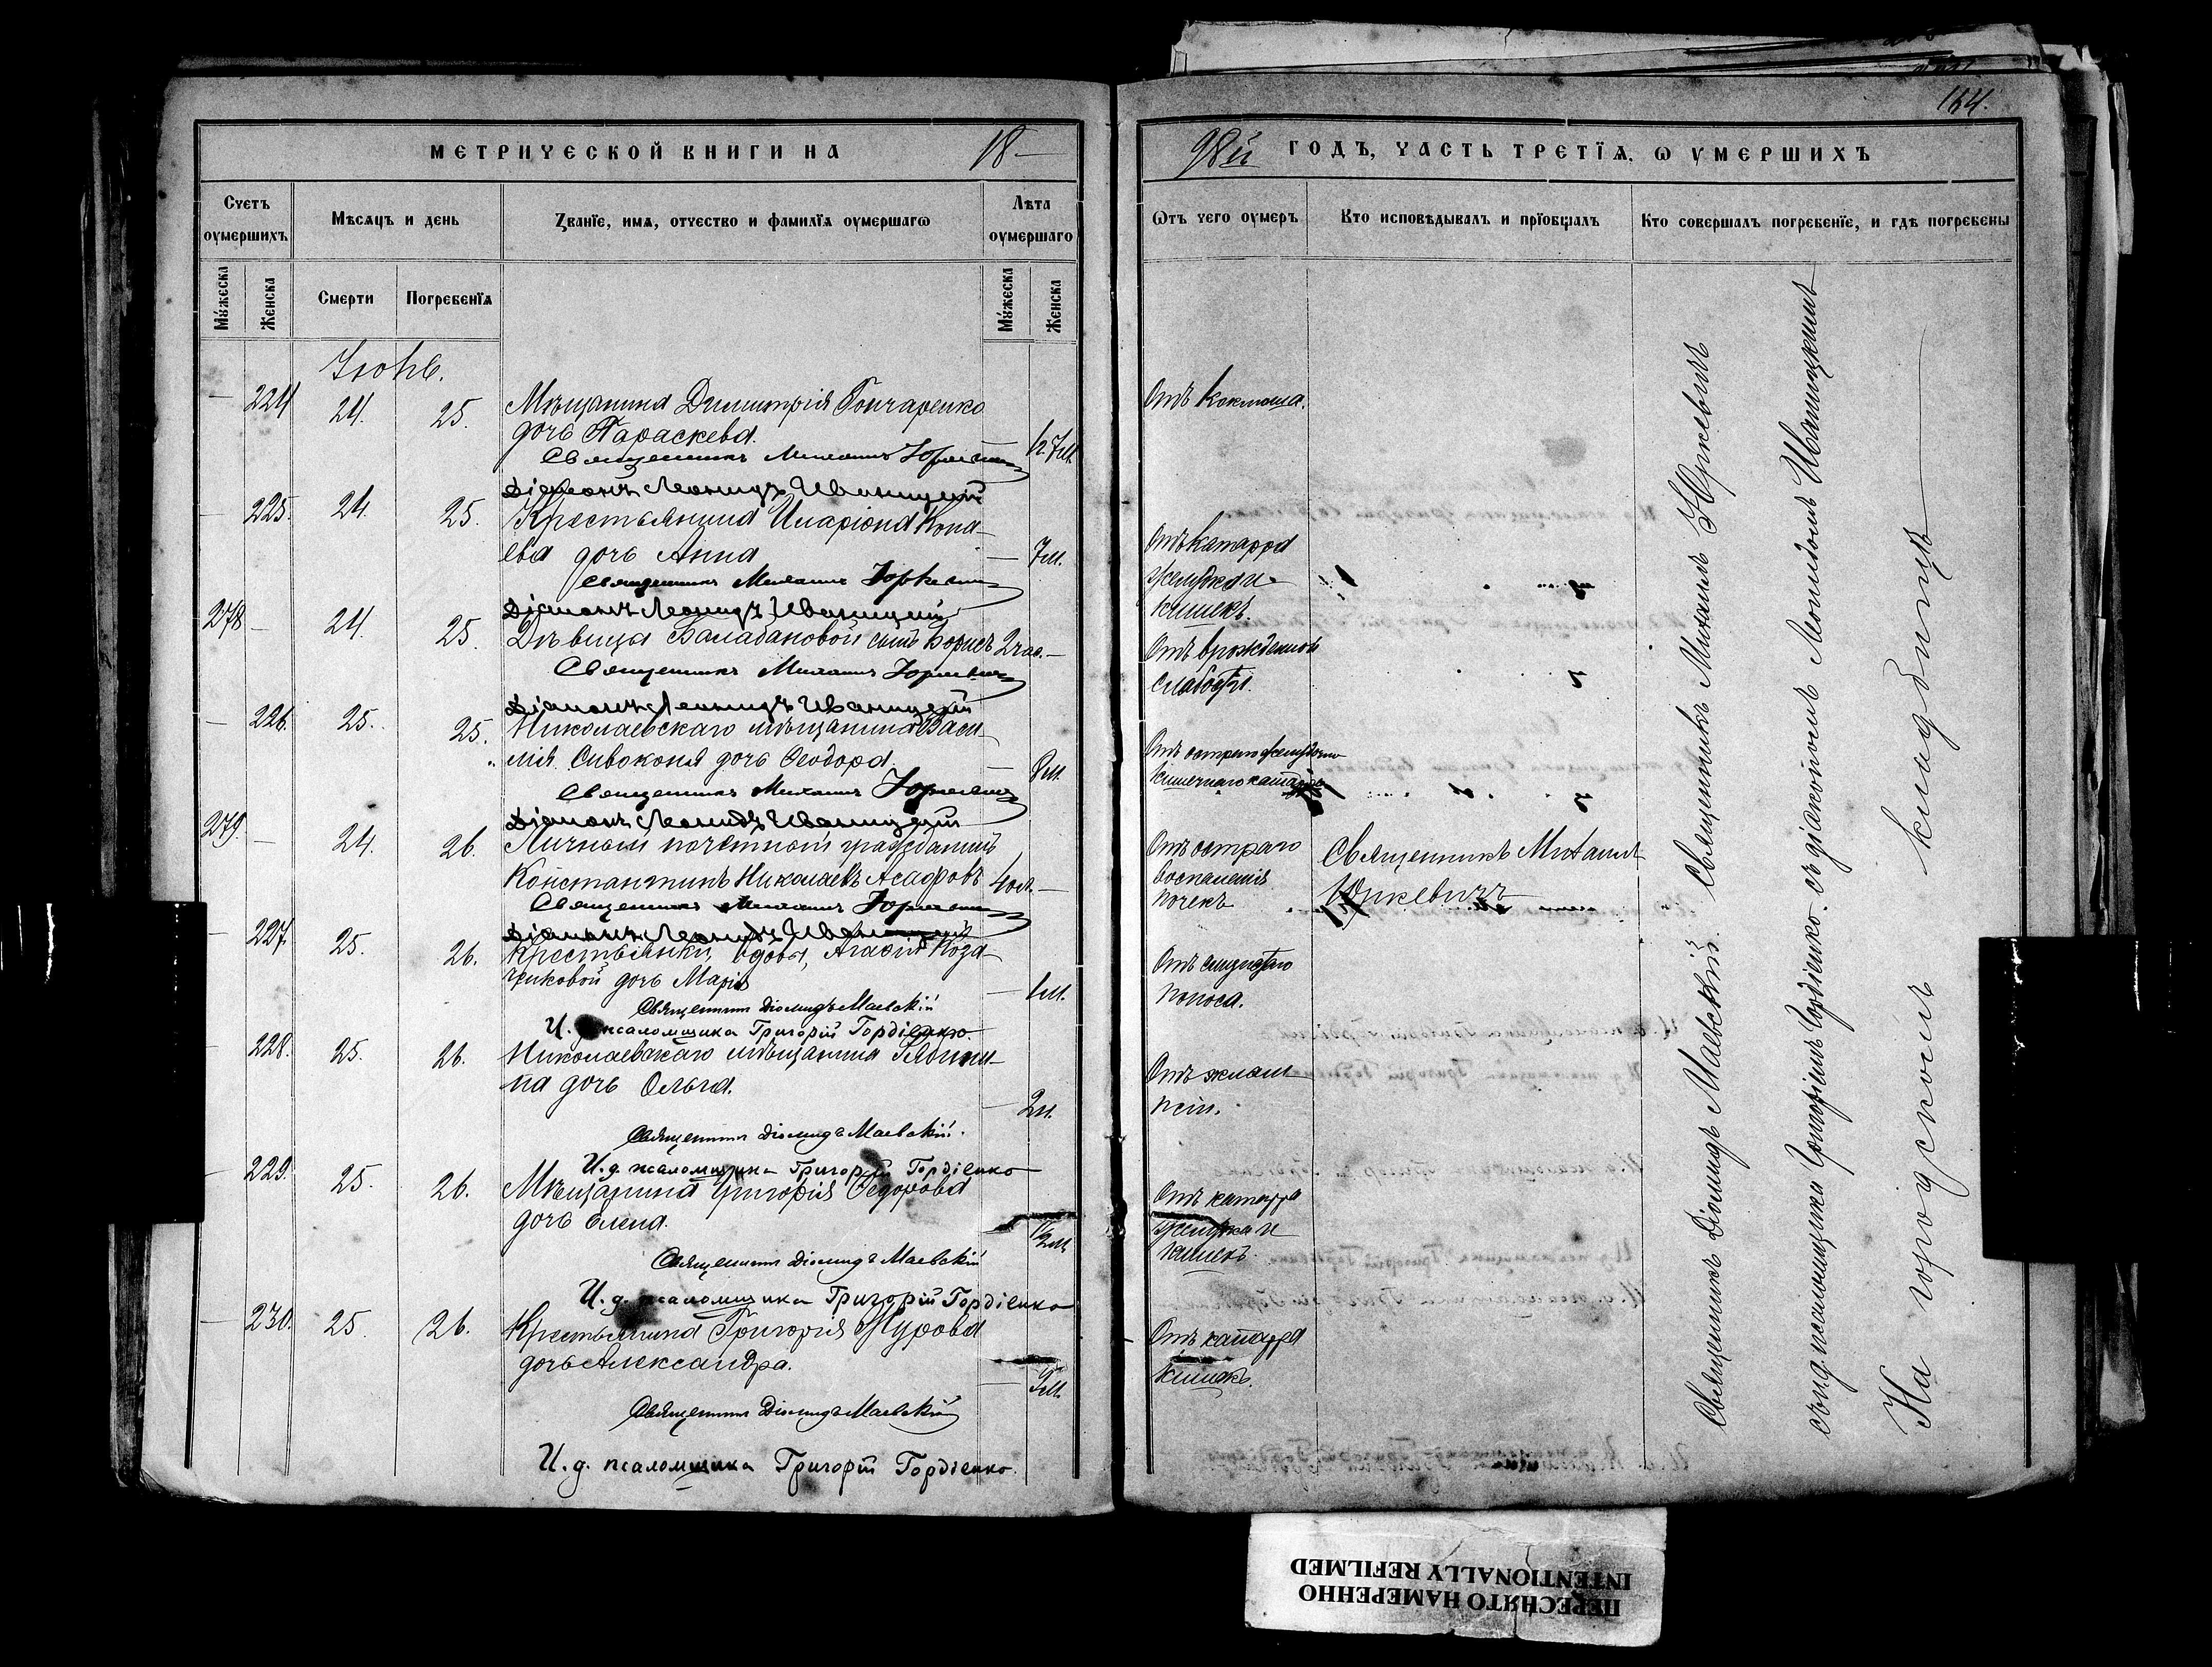 164.
МЕТРИЧЕСКОЙ КНИГИ НА 18—
98й ГОДЪ, ЧАСТЬ ТРЕТІѦ, Ѡ УМЕРШИХЪ
Счетъ оумершихъ
Мѣсѧцъ и день
Званіе, имѧ, отчество и фамиліѧ оумершагѡ
Лѣта оумершаго
Ѿтъ чего оумеръ
Кто исповѣдывалъ и пріобщалъ
Кто совершалъ погребеніе, и гдѣ погребены
Мужеска
Женска
Смерти
Погребенїѧ
Мужеска
Женска
Іюнь.
— 224 24. 25.
Мѣщанина Димитрія Гончаренко
дочь Параскева.
Отъ коклюша.
Священникъ Михаилъ Юркевичъ
Діаконъ Леонидъ Иваницкій
— 225. 24. 25.
Крестьянина Иларіона Копа-
ева дочь Анна
— 7м.
Отъ катарра
желудка и
кишекъ.
Священникъ Михаилъ Юркевичъ
Діаконъ Леонидъ Иваницкій
278 — 24. 25.
Дѣвицы Балабановой сынъ Борисъ 2 час. —
Отъ врожденной
слабости.
Священникъ Михаилъ Юркевичъ
Діаконъ Леонидъ Иваницкій
— 226. 25. 25.
Николаевскаго мѣщанина Васи-
лія Сивоконя дочь Ѳеодора.
Отъ остраго желудочно
кишечнаго катарра
Священникъ Михаилъ Юркевичъ
Діаконъ Леонидъ Иваницкій
279. — 24. 26.
Личный почетный гражданинъ
Константинъ Николаевъ Агафровъ 40л. —
Отъ остраго
воспаленія
почекъ
Священникъ Михаилъ
Юркевичъ
Священникъ Михаилъ Юркевичъ
Діаконъ Леонидъ Иваницкій
— 227. 25. 26.
Крестьянки, вдовы, Агафіи Коза-
чиковой дочь Марія
— 1м.
Отъ слизистаго
поноса.
Священникъ Діомидъ Маевскій
И. д. псаломщика Григорій Гордіенко.
— 228. 25. 26.
Николаевскаго мѣщанина
на дочь Ольга.
— 2м.
Отъ эклам-
псіи.
Священникъ Діомидъ Маевскій.
И. д. псаломщика Григорій Гордіенко
— 229. 25. 26.
Мѣщанина Григорія Ѳедорова
дочь Елена.
Отъ катарра
желудка и
кишекъ.
Священникъ Діомидъ Маевскій
И. д. псаломщика Григорій Гордіенко
— 230. 25. 26.
Крестьянина Григорія Журова
дочь Александра.
Отъ катарра
кишекъ.
Священникъ Діомидъ Маевскій
И. д. псаломщика Григорій Гордіенко.
Священникъ Діомидъ Маевскій. Священникъ Михаилъ Юркевичъ
съ и. д. псаломщика Григоріемъ Гордіенко. съ діакономъ Леонидомъ Иваницкимъ
На городскомъ кладбищѣ
ПЕРЕСНЯТО НАМЕРЕННО
INTENTIONALLY REFILMED